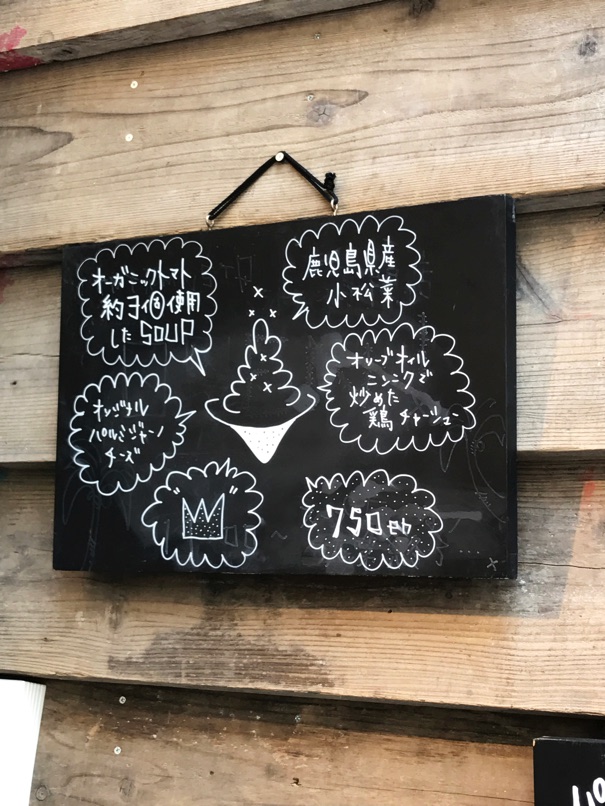 オーガニックトマト
約3個使用
した SOUP
鹿児島県産
小松菜
オリジナル
パルミジャーノ
チーズ
オリーブオイル
ニンニクで
炒めた
鶏チャーシュー
750